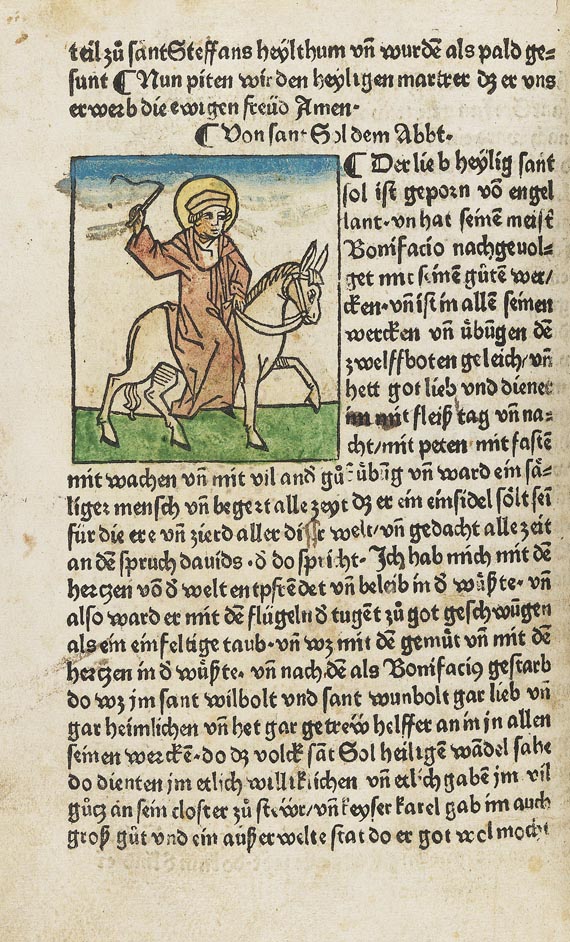 teil zů sant Steffans heÿlthum vñ wurdē als pald ge=
sunt ¶ Nun piten wir den heyligen martrer dz er vns
erwerb die ewigen freüd Amen·
¶ Von sant Sol dem Abbt·
¶ Der lieb heÿlig sant
sol ist geporn võ engel
lant· vn hat seinē meist
Bonifacio nachgeuol=
get mit seinē gůtē wer/
cken· vñ ist in allē seinen
wercken vñ ůbůgen dē
zwelffboten geleich/ vñ
hett got lieb vnd dienet
im mit fleiß tag vñ na=
cht/ mit peten mit fastē
mit wachen vñ mit vil and gůt ůbũg vñ ward ein sä=
liger mensch vñ begert alle zeyt dz er ein einsidel sölt sei
für die ere vñ zierd aller diser welt/ vñ gedacht alle zeit
an dē spruch dauids · d do spricht· Ich hab mich mit dē
hertzen võ d welt entpfrēdet vñ beleib in d wůßte· vñ
also ward er mit dē flügeln d tugēt zů got geschwũgen
als ein einfeltige taub· vñ wz mit dē gemůt vñ mit dē
hertzen in d wůßte· vñ nach dē als Bonifaciꝰ gestarb
do wz jm sant wilbolt vnd sant wunbolt gar lieb vñ
gar heimlichen vñ het gar getrew helffer an in jn allen
seinen werckē· do dz volck sāt Sol heiligē wādel sahe
do dienten jm etlich williklichen vñ etlich gabē jm vil
gůtz an sein closter zů stewr/ vñ keyser karel gab im auch
groß gůt vnd ein außerwelte stat do er got wol mocht